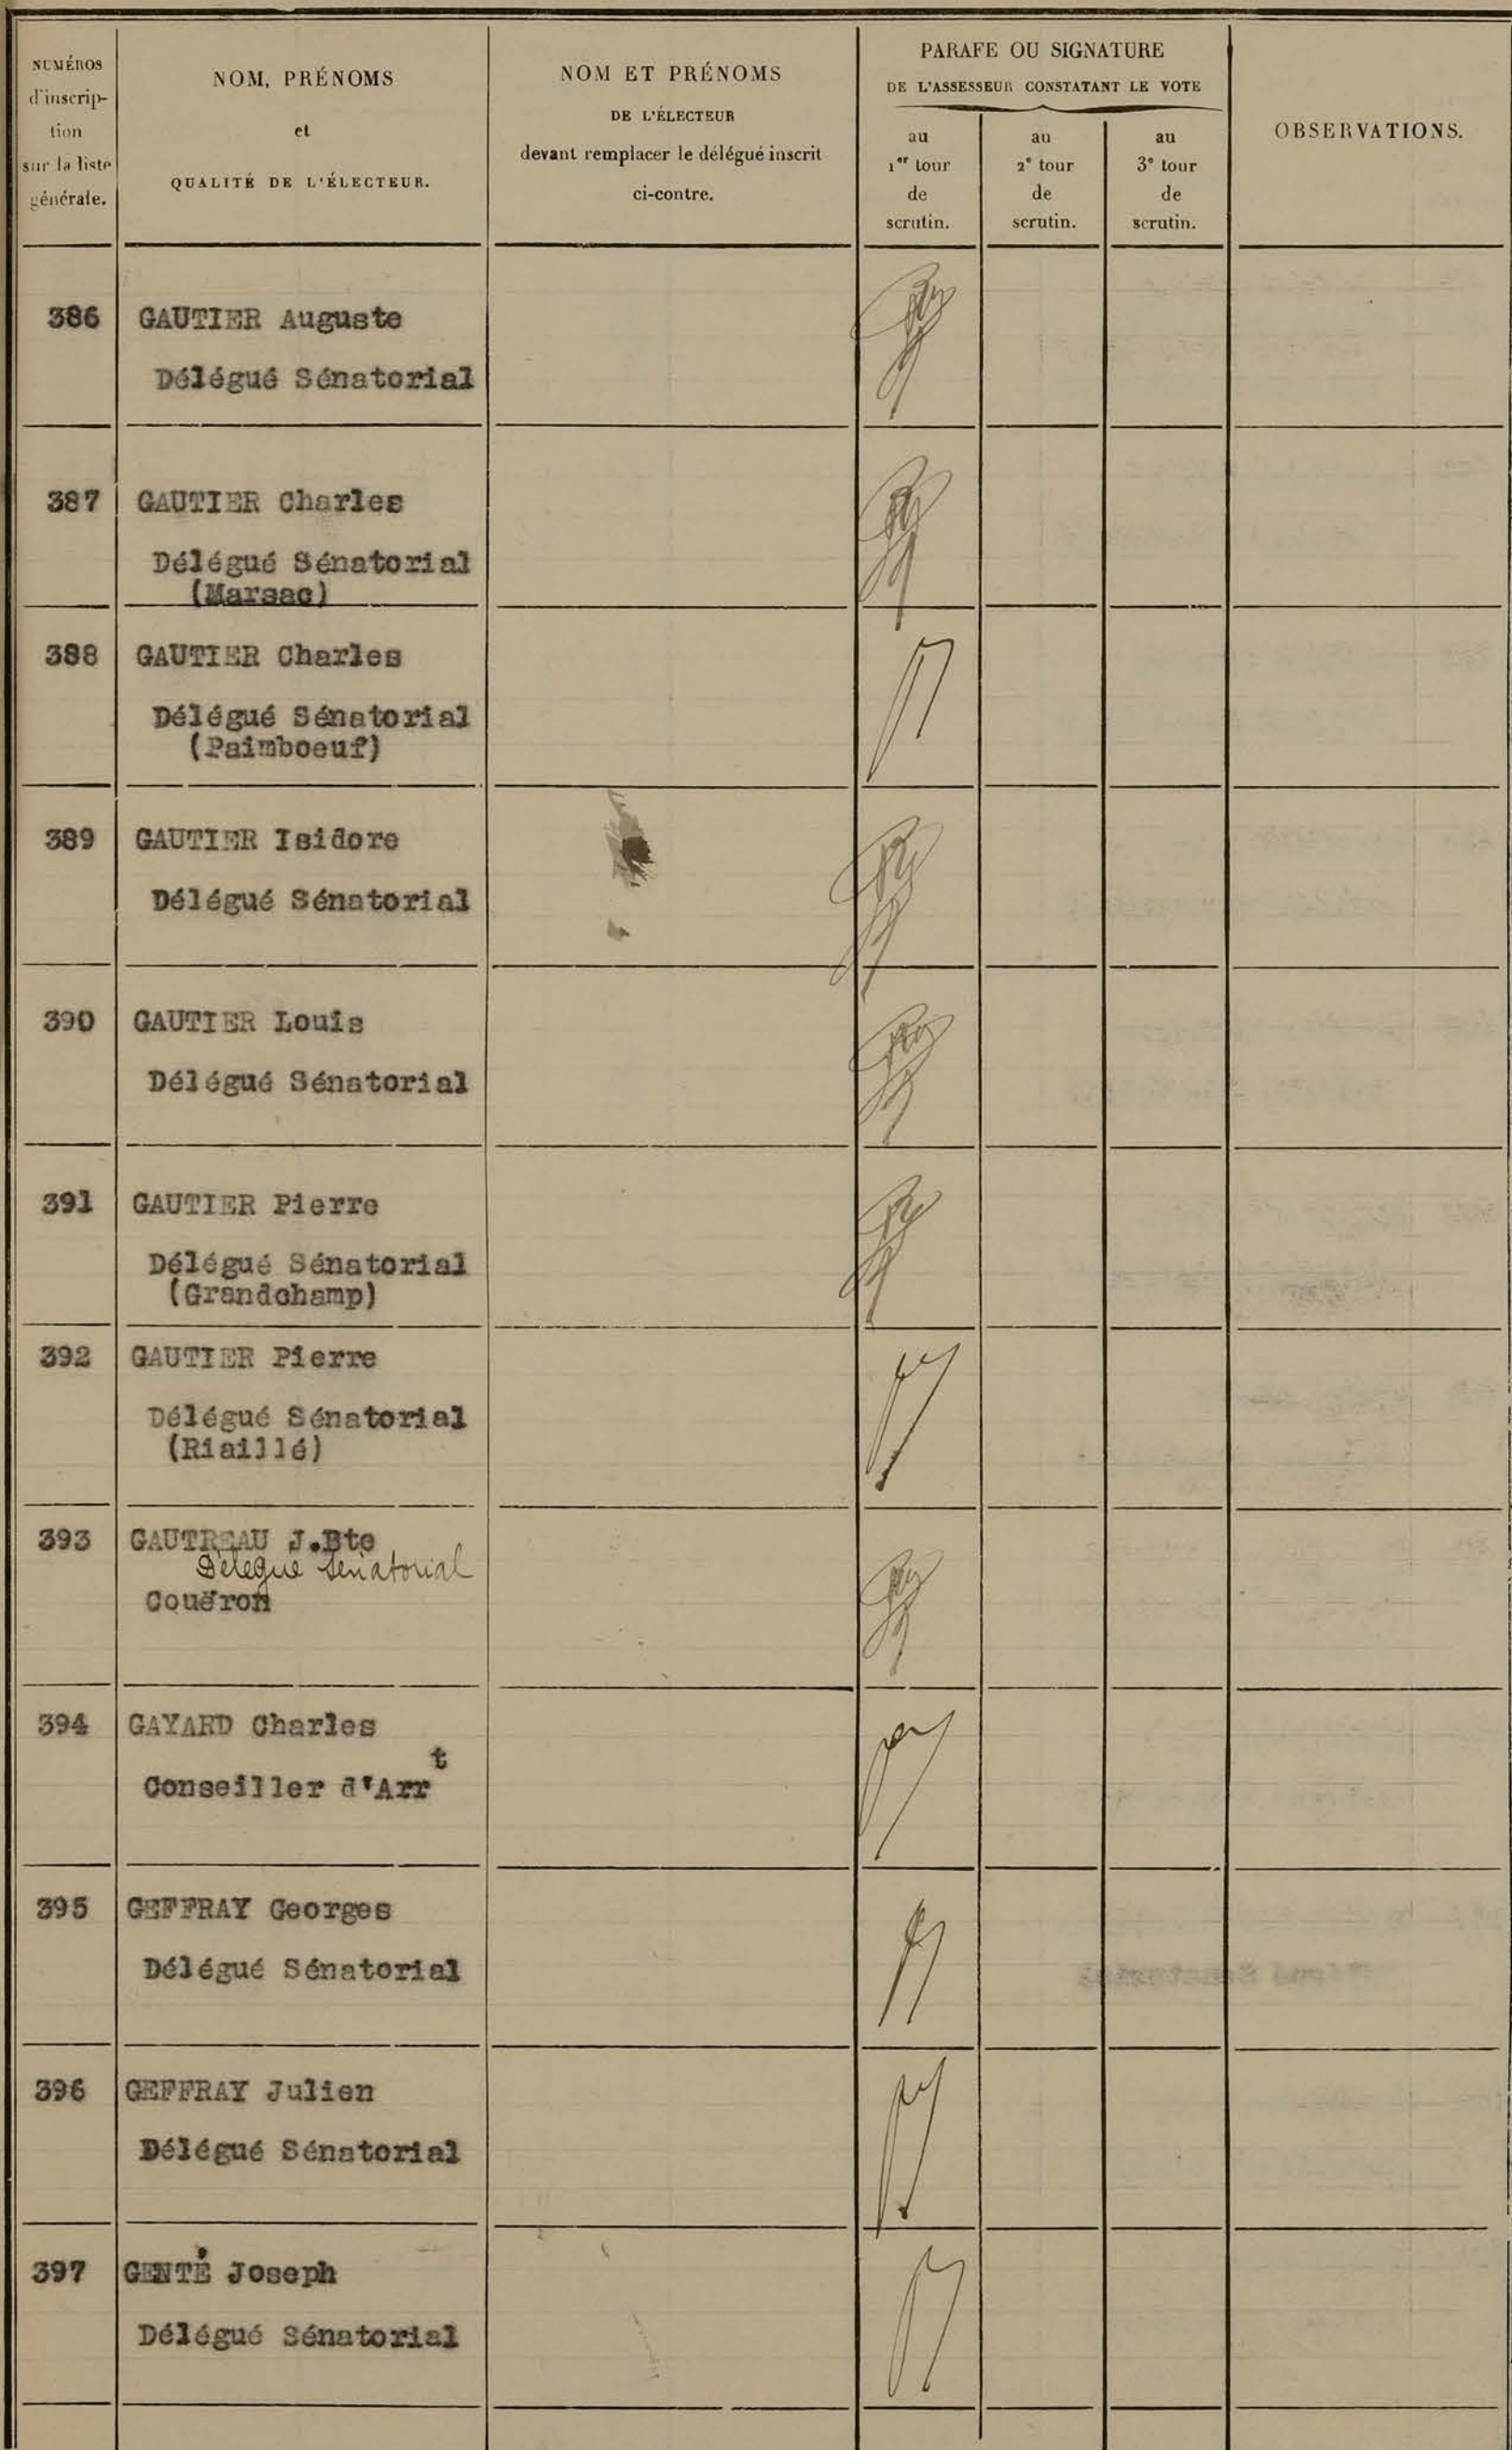 NUMÉROS
d'inscrip-
tion
sur la liste
générale.
NOM, PRÉNOMS
et
QUALITÉ DE L'ÉLECTEUR.
NOM ET PRÉNOMS
DE L'ÉLECTEUR
devant remplacer le délégué inscrit
ci-contre.
PARAFE OU SIGNATURE
DE L'ASSESSEUR CONSTATANT LE VOTE
au
1er tour
de
scrutin.
au
2e tour
de
scrutin.
au
3e tour
de
scrutin.
OBSERVATIONS.
386 GAUTIER Auguste
Délégué Sénatorial
387 GAUTIER Charles
Délégué Sénatorial
(Marsac)
388 GAUTIER Charles
Délégué Sénatorial
(Paimboeuf)
389 GAUTIER Isidore
Délégué Sénatorial
390 GAUTIER Louis
Délégué Sénatorial
391 GAUTIER Pierre
Délégué Sénatorial
(Grandchamp)
392 GAUTIER Pierre
Délégué Sénatorial
(Riaillé)
393 GAUTREAU J.Bte
Délégué Sénatorial
Couëron
394 GAYARD Charles
Conseiller d'Arrt
395 GEFFRAY Georges
Délégué Sénatorial
396 GEFFRAY Julien
Délégué Sénatorial
397 GENTÉ Joseph
Délégué Sénatorial